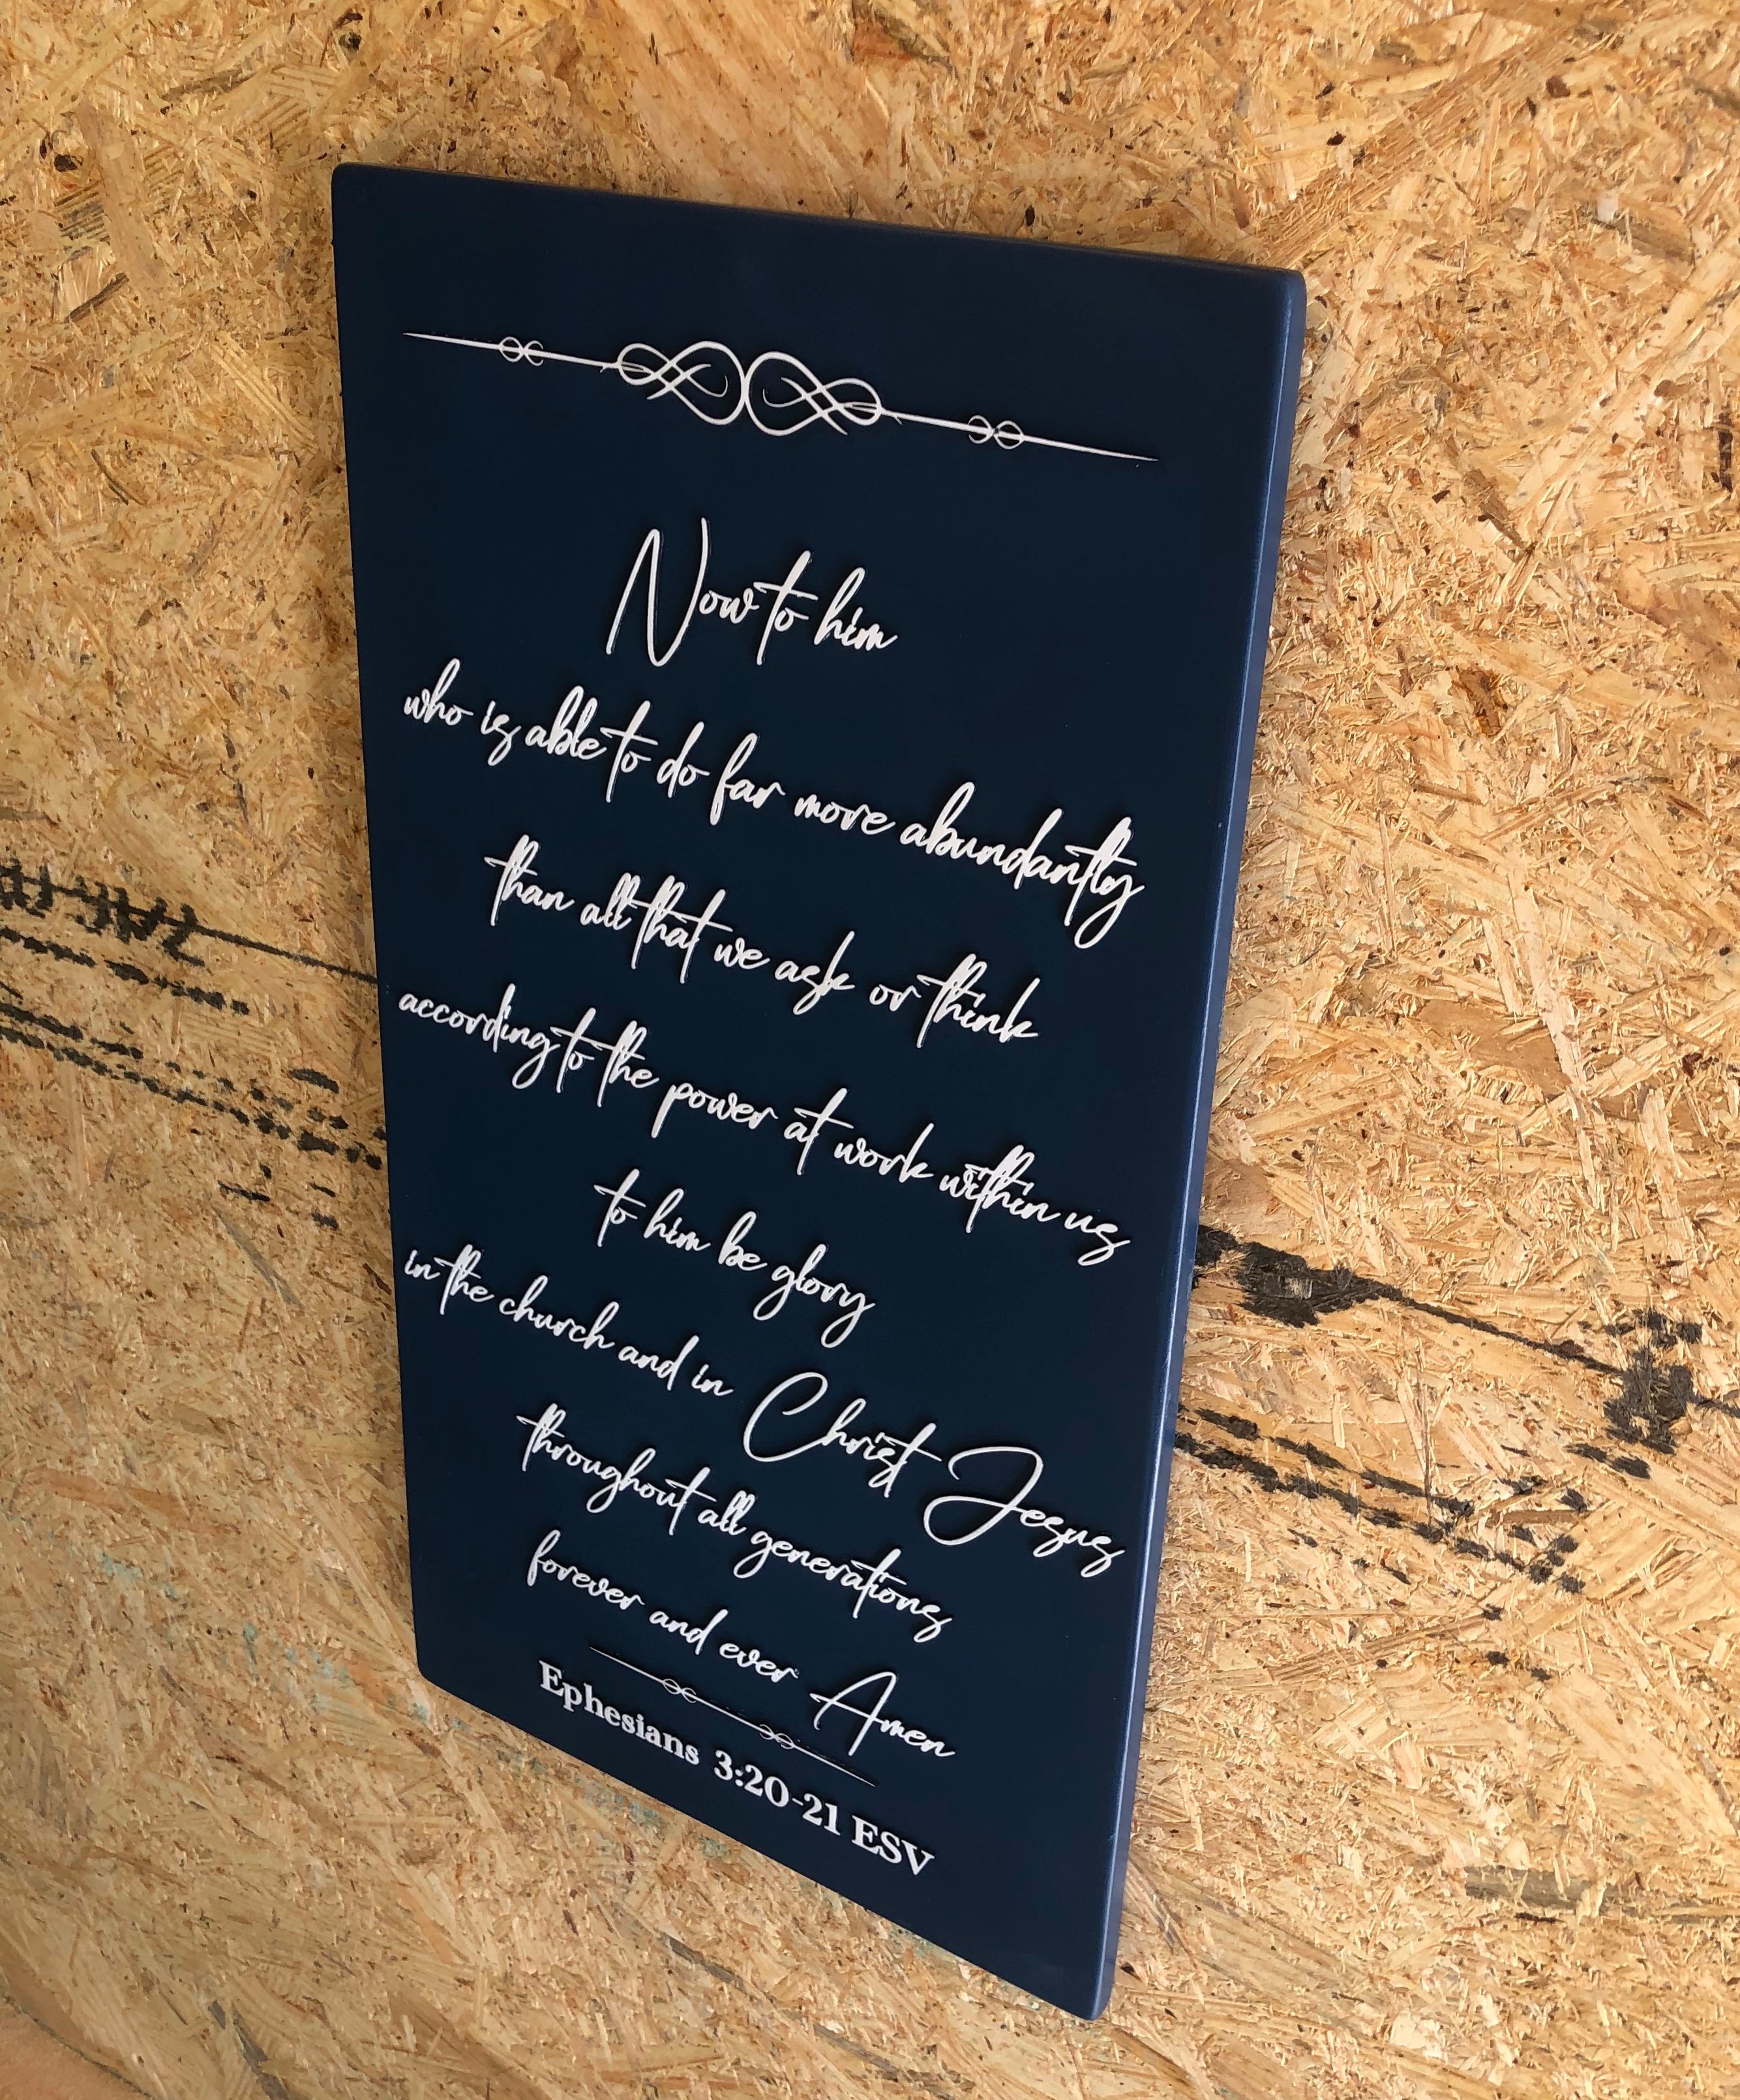 Now to him
who is able to do far more abundantly
than all that we ask or think
according to the power at work within us
to him be glory
in the church and in Christ Jesus
throughout all generations
forever and ever Amen
Ephesians 3:20-21 ESV